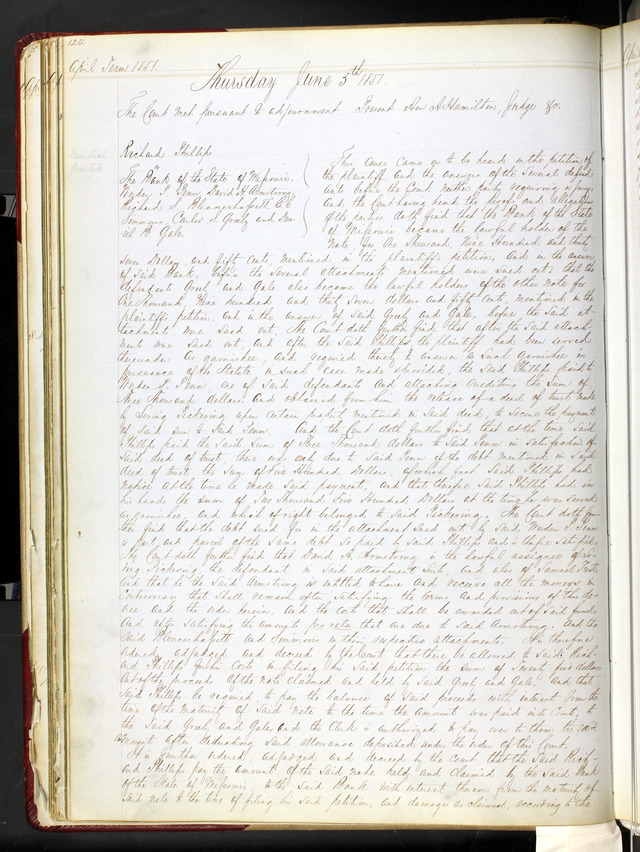 124
April Term 1851.
Thursday June 5th 1851.
The Court met pursuant to adjournment Present Hon A Hamilton, Judge &c.
Richard Phillips
The Bank of the State of Missouri
Wyden S. Penn, David H Armstrong
Richard S. Blennerhassett E.C.
Simmons, Carlos S. Greely and Dan
iel B. Gale.
This cause came on to be heard on the petition of
the plaintiff and the answers of the several defend
ants before the Court neither party requiring a jury
And the Court having heard the proofs and allegations
of the parties doth find that the Bank of the State
of Missouri became the lawful holder of the
Note for One Thousand, Nine Hundred and thirty
seven Dollars and fifty cents, mentioned in the plaintiffs petition, and in the answer
of said Bank, before the several attachments mentioned were sued out, that the
defendants Greely and Gale also became the lawful holders of the other note for
One Thousand, Nine hundred and thirty seven dollars and fifty cents, mentioned in the
plaintiffs petition and in the answer of said Greely and Gale, before the said at
tachment were sued out, The Court doth further find that after the said attach
ment was sued out, and after the said Phillips the plaintiff had been served
thereunder as garnishee, and required thereby to answer as such garnishee in
pursuance of the Statute in such case made & provided, the said Phillips paid to
Wyden S. Penn, one of said defendants and attaching creditors the sum of
Three Thousand dollars and obtained from him the release of a deed of trust made
by Loring Pickering upon certain property mentioned in said deed, to secure the payment
of said sum to said Penn. And the Court doth further find that at the time said
Phillips paid the said sum of Three Thousand dollars to said Penn in satisfaction of
said deed of trust there was only due to said Penn of the debt mentioned in said
deed of trust the sum of Five Hundred Dollars, of which fact said Phillips had
notice at the time he made said payment, and that therefore said Phillips had in
his hands the sum of Two Thousand Five Hundred Dollars at the time he was served
as garnishee and which of right belonged to said Pickering. The Court doth fur
ther find that the debt sued for in the attachment sued out by said Wyden S Penn
is part and parcel of the same debt so paid by said Phillips and is therefore satisfied,
The Court doth further find that David H. Armstrong is the lawful assignee of Lo
ring Pickering the defendant in said attachment suits, and also of Samuel Treat
and that he the said Armstrong is entitled to have and receive all the moneys in
controversy that shall remain after satisfying the terms and provisions of this de
cree and the order herein, and the costs that shall be awarded out of said fund,
and after satisfying the amounts pro rata that are due to said Armstrong. And the
said Blennerhassett and Simmons in their respective attachments. It is therefore
ordered adjudged and decreed by the Court that there be allowed to said Rich
ard Phillips for his Costs in filing his said petition the sum of Twenty five dollars
out of the proceeds of the note claimed and held by said Greely and Gale, and that
said Phillips be required to pay the balance of said proceeds with interest from the
time of the maturity of said note to the time the amount was paid into Court, to
the said Greely and Gale, and the Clerk is authorized to pay over to them the
amount after deducting said allowance deposited under the order of this Court.
It is further ordered, adjudged and decreed by the Court that the said Rich-
ard Phillips pay the amount of the said note held and claimed by the said Bank
of the State of Missouri to the said Bank with interest thereon from the maturity of
said note to the time of filing his said petition, and damages as claimed, according to the